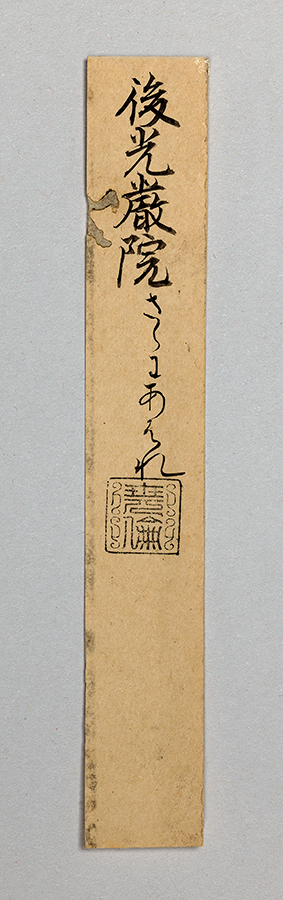 後光厳院さらにあはれ